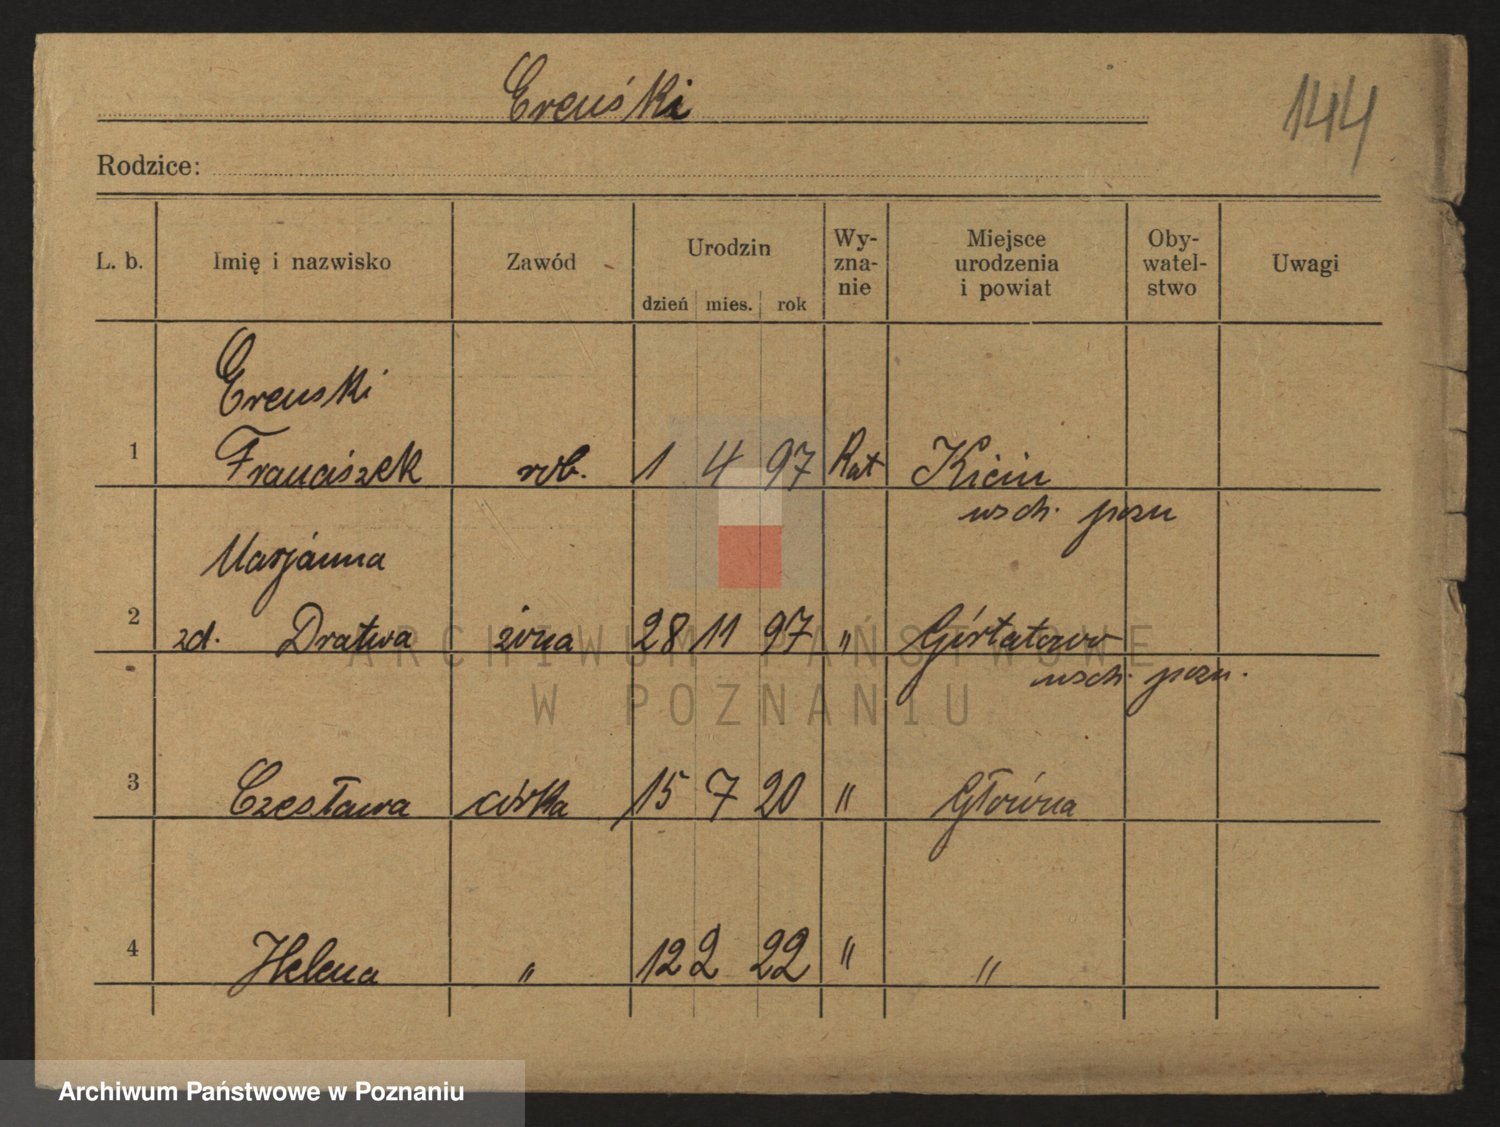 Ereuśki
144
Rodzice:
L. b. Imię i nazwisko Zawód Urodzin dzień mies. rok Wy-zna-nie Miejsce urodzenia i powiat Oby-watel-stwo Uwagi
Ereuski
1 Franciszek rob. 1 4 97 Kat Kicin
wsch. pozn
Marjanna
2 zd. Dratwa żona 28 11 97 " Górtatowo
wsch. pozn.
3 Czesława córka 15 7 20 " Główna
4 Helena " 12 2 22 " "
ARCHIWUM PAŃSTWOWE
W POZNANIU
Archiwum Państwowe w Poznaniu